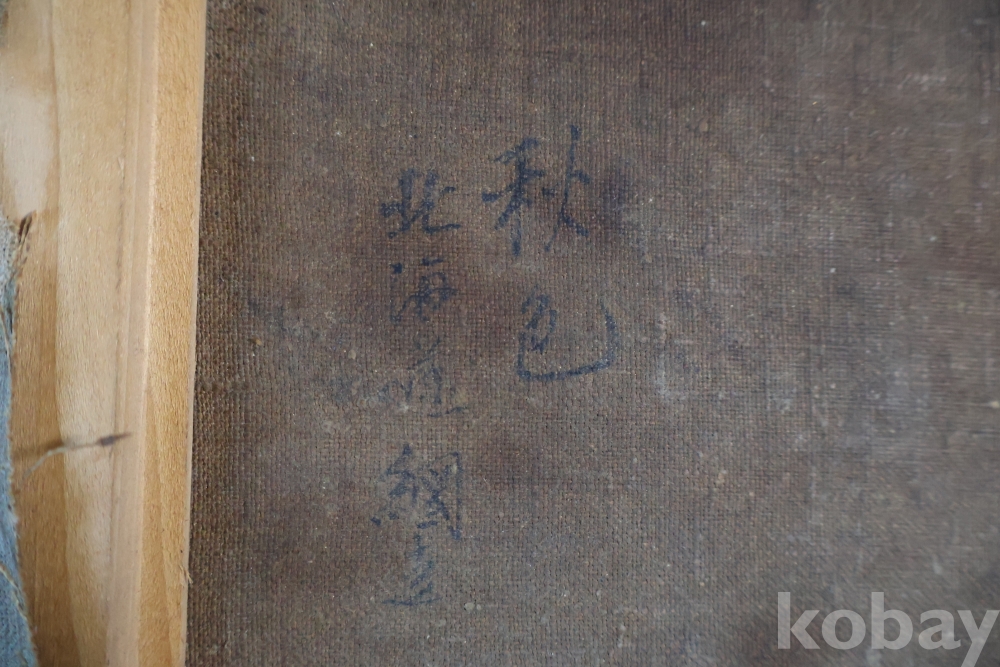 秋色
北海道 網走
kobay